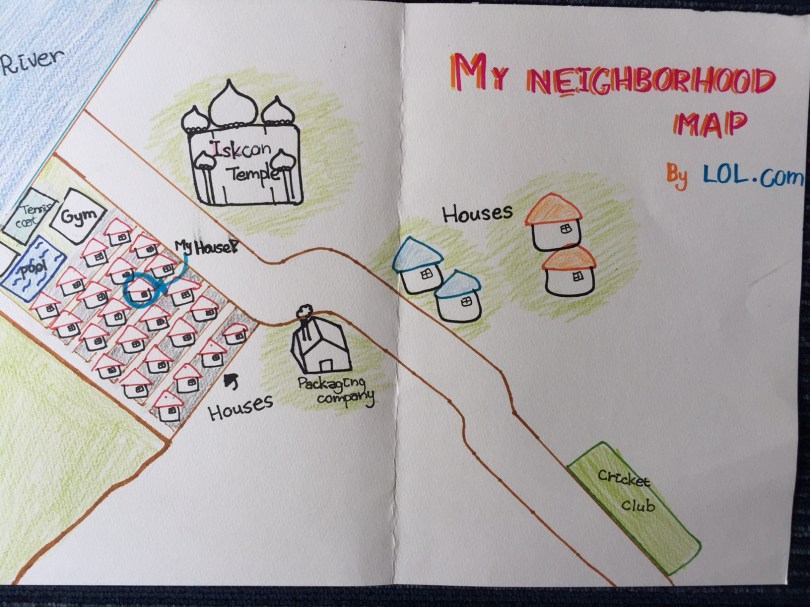 River
MY NEIGHBORHOOD
MAP
By LOL.com
Iskcon
Temple
Houses
Tennis
Gym
pool
My House!
Packaging
company
Houses
Cricket
Club